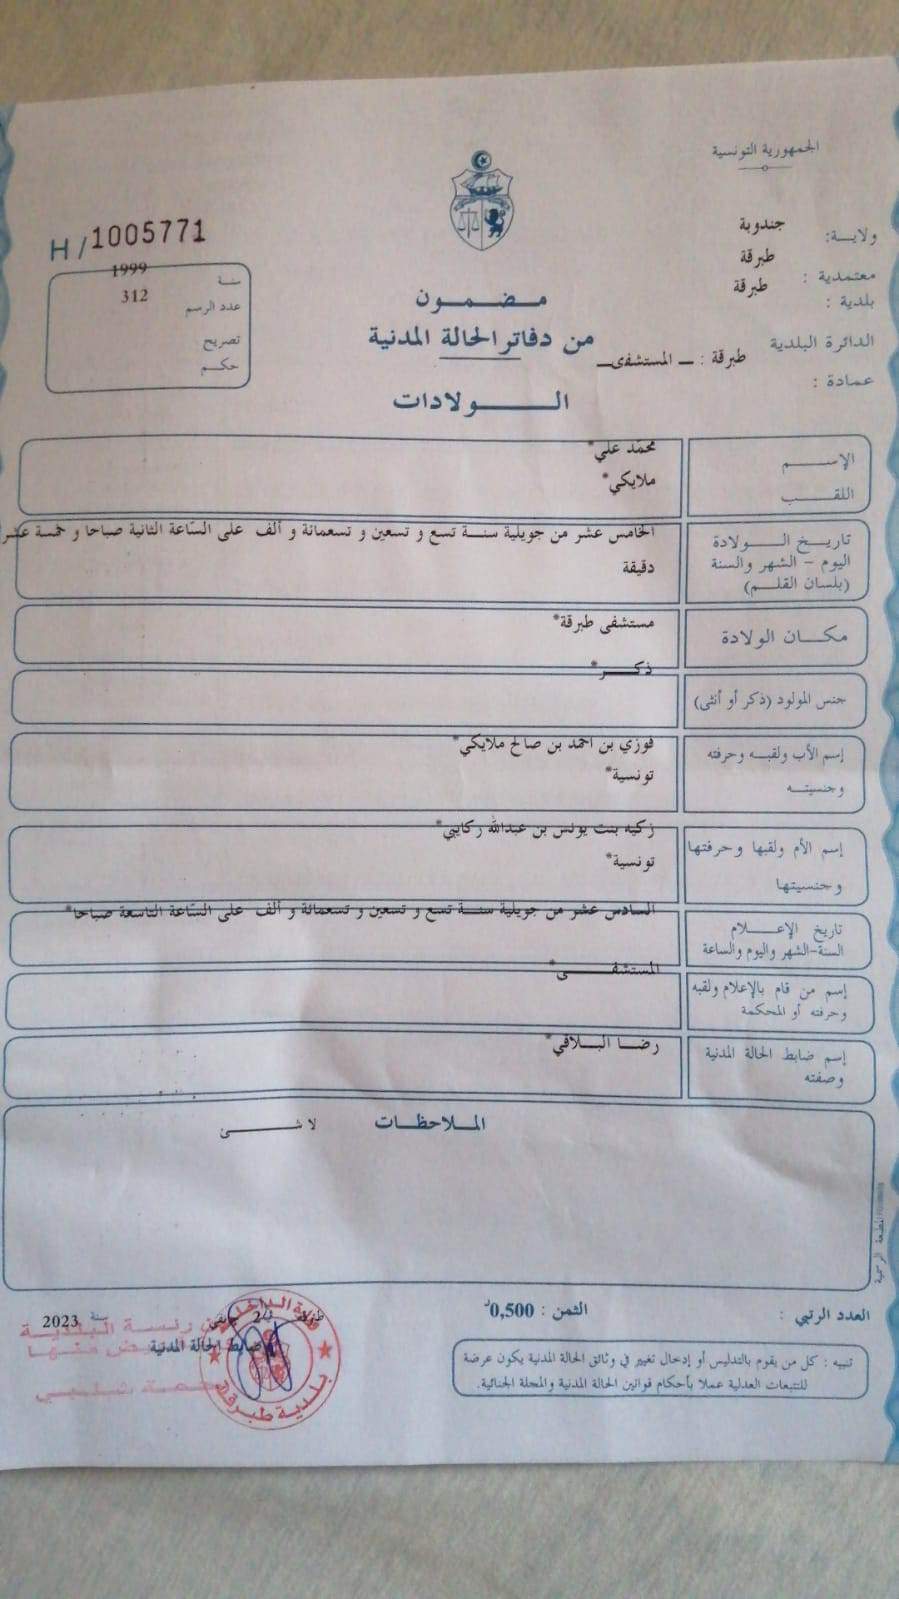 الجمهورية التونسية
ولايـــة: جندوبة
معتمدية : طبرقة
بلدية : طبرقة
الدائرة البلدية طبرقة : ــ المستشفى ــ
عمادة :
H/1005771
سنة 1999
عدد الرسم 312
تصريح
حكم
مضمون
من دفاتر الحالة المدنية
الـــولادات
الإســـم محمّد علي*
اللقـــب ملايكي*
تاريــخ الـــولادة
اليوم – الشهر والسنة
(بلسان القلـــم)
الخامس عشر من جويلية سنـــة تسع و تسعين و تسعمائة و ألف على السّاعة الثانية صباحا و خمسة عشر
دقيقة
مكـــان الولادة مستشفى طبرقة*
جنس المولود (ذكر أو أنثى) ذكـــر*
إسم الأب ولقبـــه وحرفته
وجنسيتـــه
فوزي بن احمد بن صالح ملايكي*
تونسية*
إسم الأم ولقبها وحرفتها
وجنسيتها
زكية بنت يونس بن عبدالله ركايبي*
تونسية*
تاريخ الإعـــلام
السنة-الشهر واليوم والساعة
السادس عشر من جويلية سنـــة تسع و تسعين و تسعمائة و ألف على السّاعة التاسعة صباحا*
إسم من قام بالإعلام ولقبه
وحرفته أو المحكمة
المستشفـــى*
إسم ضابط الحالة المدنية
وصفته
رضـــا البـــلاقي*
المـــلاحظـــات لا شـــئ
المطبعة الرسمية
العدد الرتبي :
الثمن : 0,500د
تنبيه : كل من يقوم بالتدليس أو إدخال تغيير في وثائق الحالة المدنية يكون عرضة
للتبعات العدلية عملا بأحكام قوانين الحالة المدنية والمجلة الجنائية.
في 2 سنة 2023
ضابط الحالة المدنية
رئيسة البلدية
منها
بلدية طبرقة